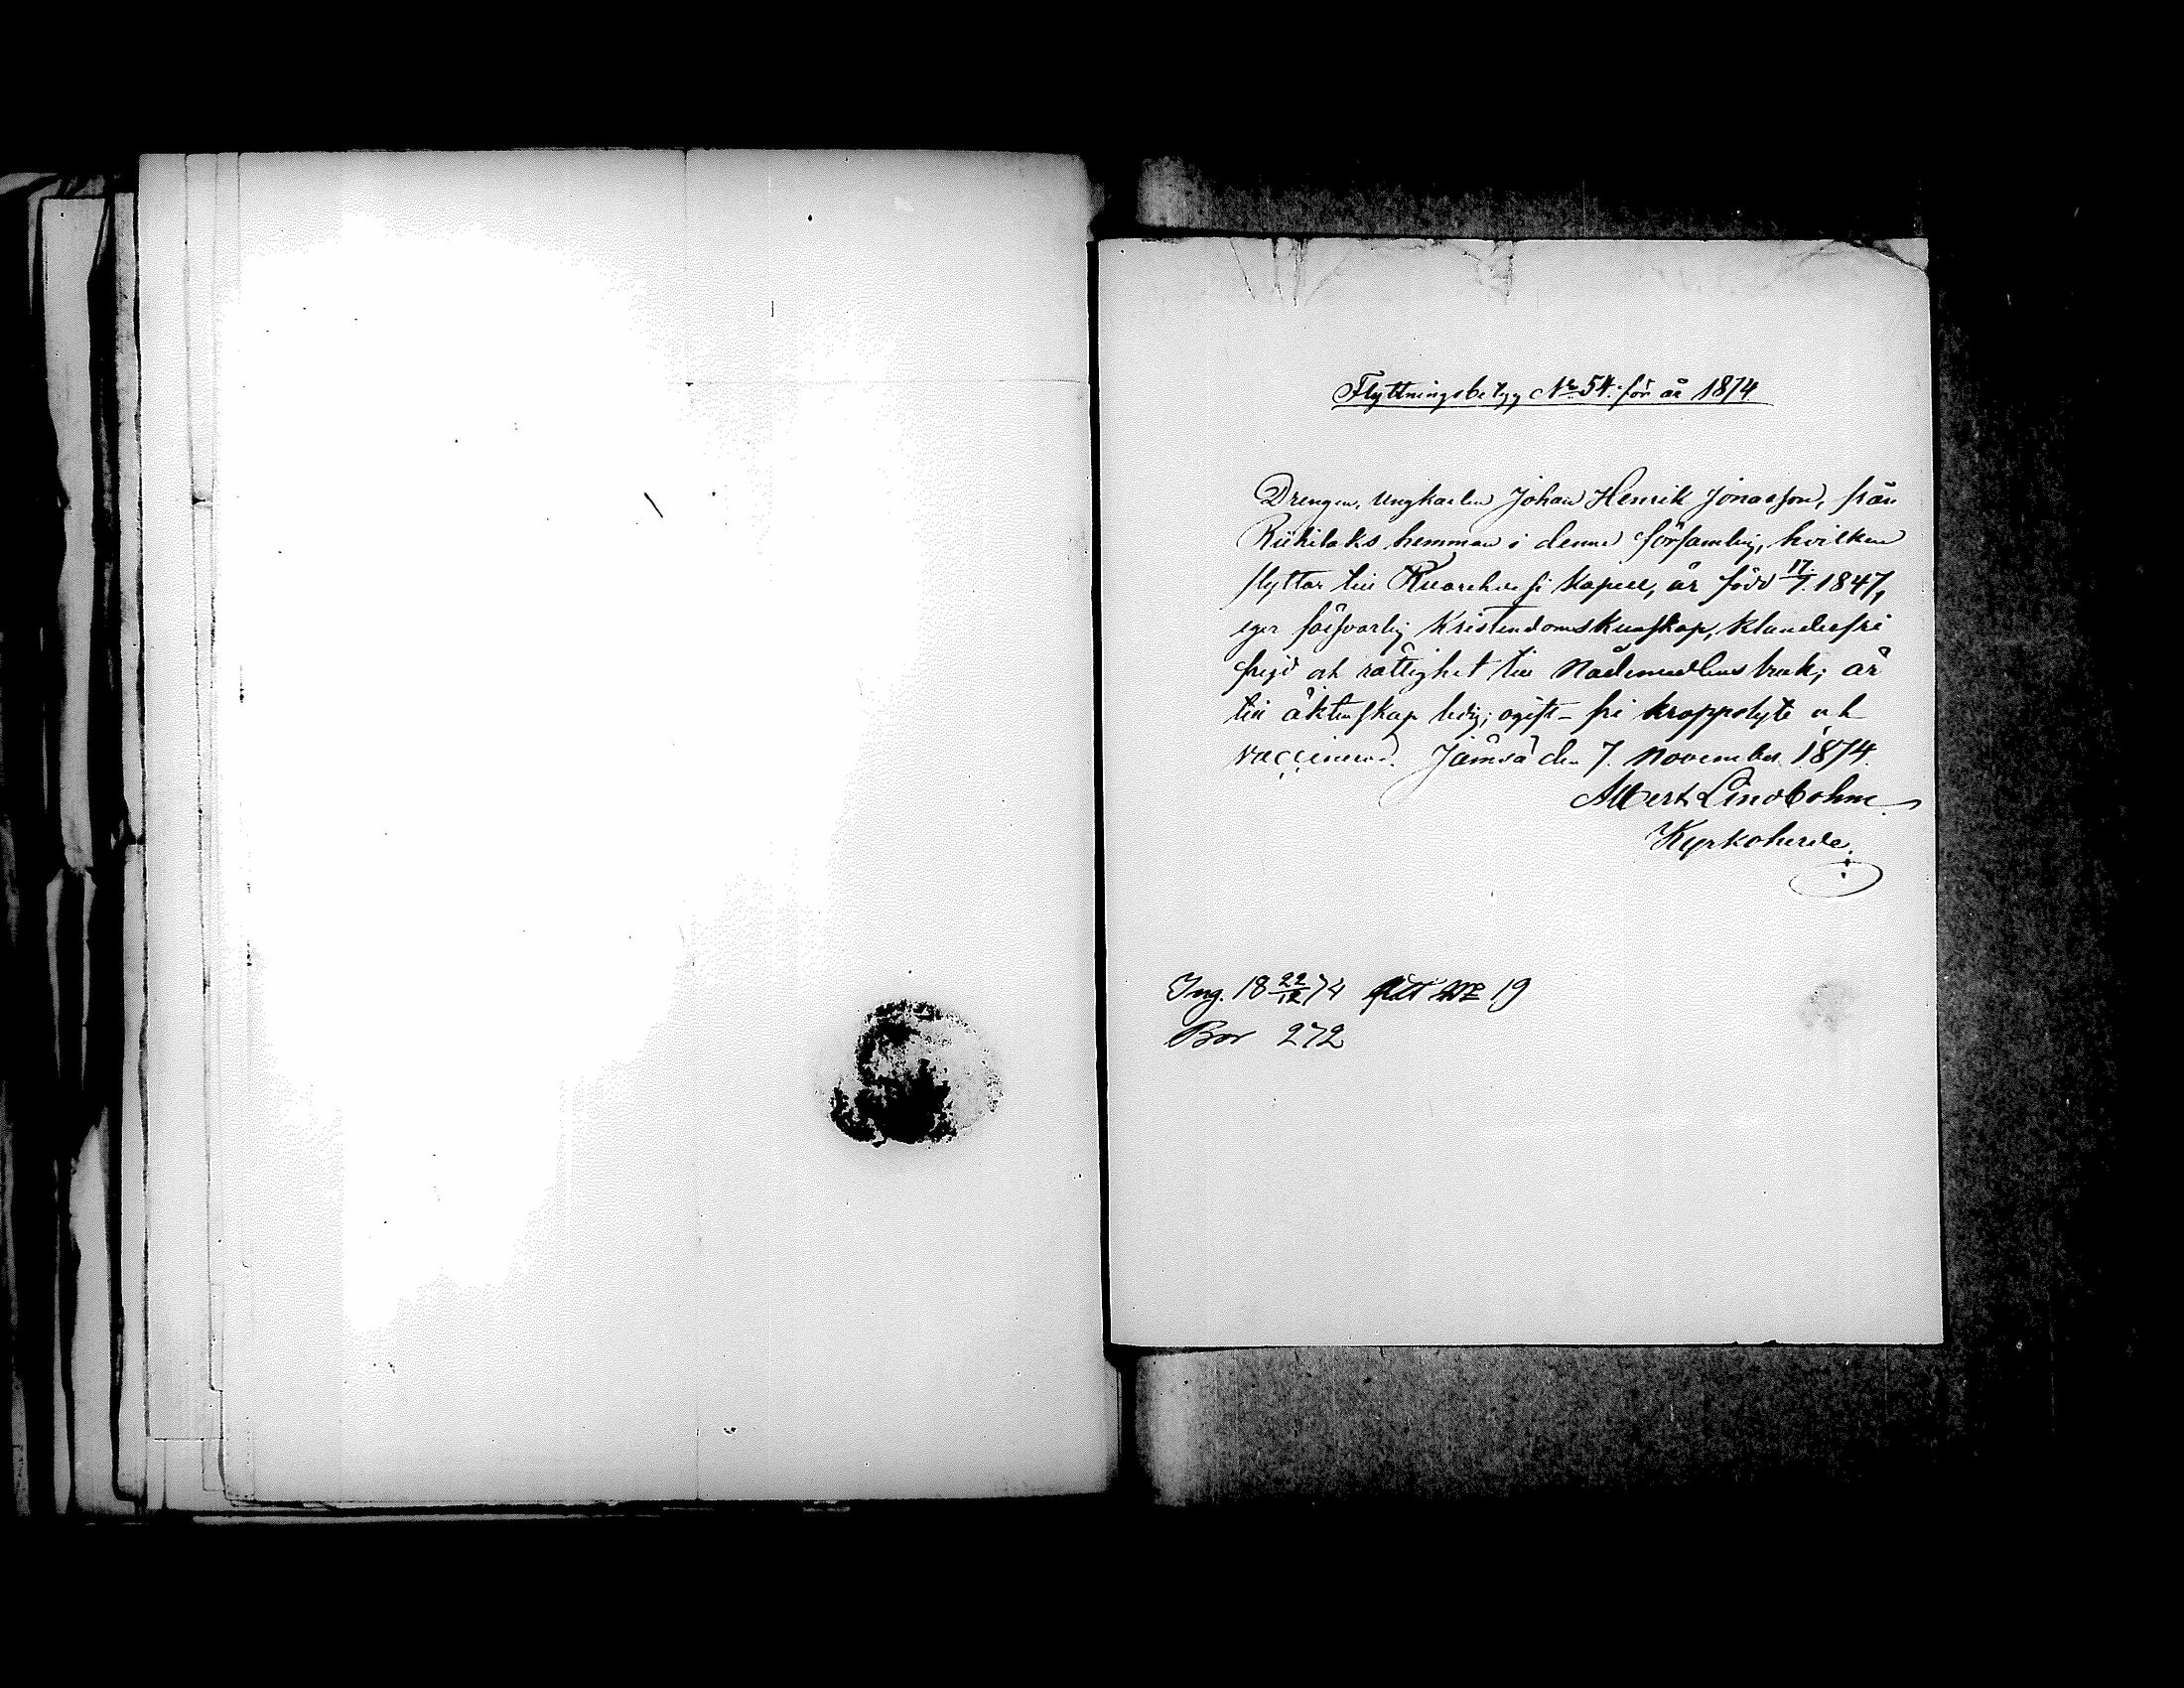 Flyttningsbetyg No 54. för år 1874
Drengen, ungkarlen Johan Henrik Jonasson, från
Riihilaks hemman i denna församling, hvilken
flyttar till Kuorehvesi kapell, är född 17/7. 1847,
eger försvarlig kristendomskunskap, klanderfri
frejd och rättighet till nådemedlens bruk; är
till äktenskap ledig; ogift – fri kroppslyte och
vaccinerad. Jämsä den 7. November 1874.
Albert Lindbohm
Kyrkoherde.
Ing. 18 22/12 74 No 19
Bor 272